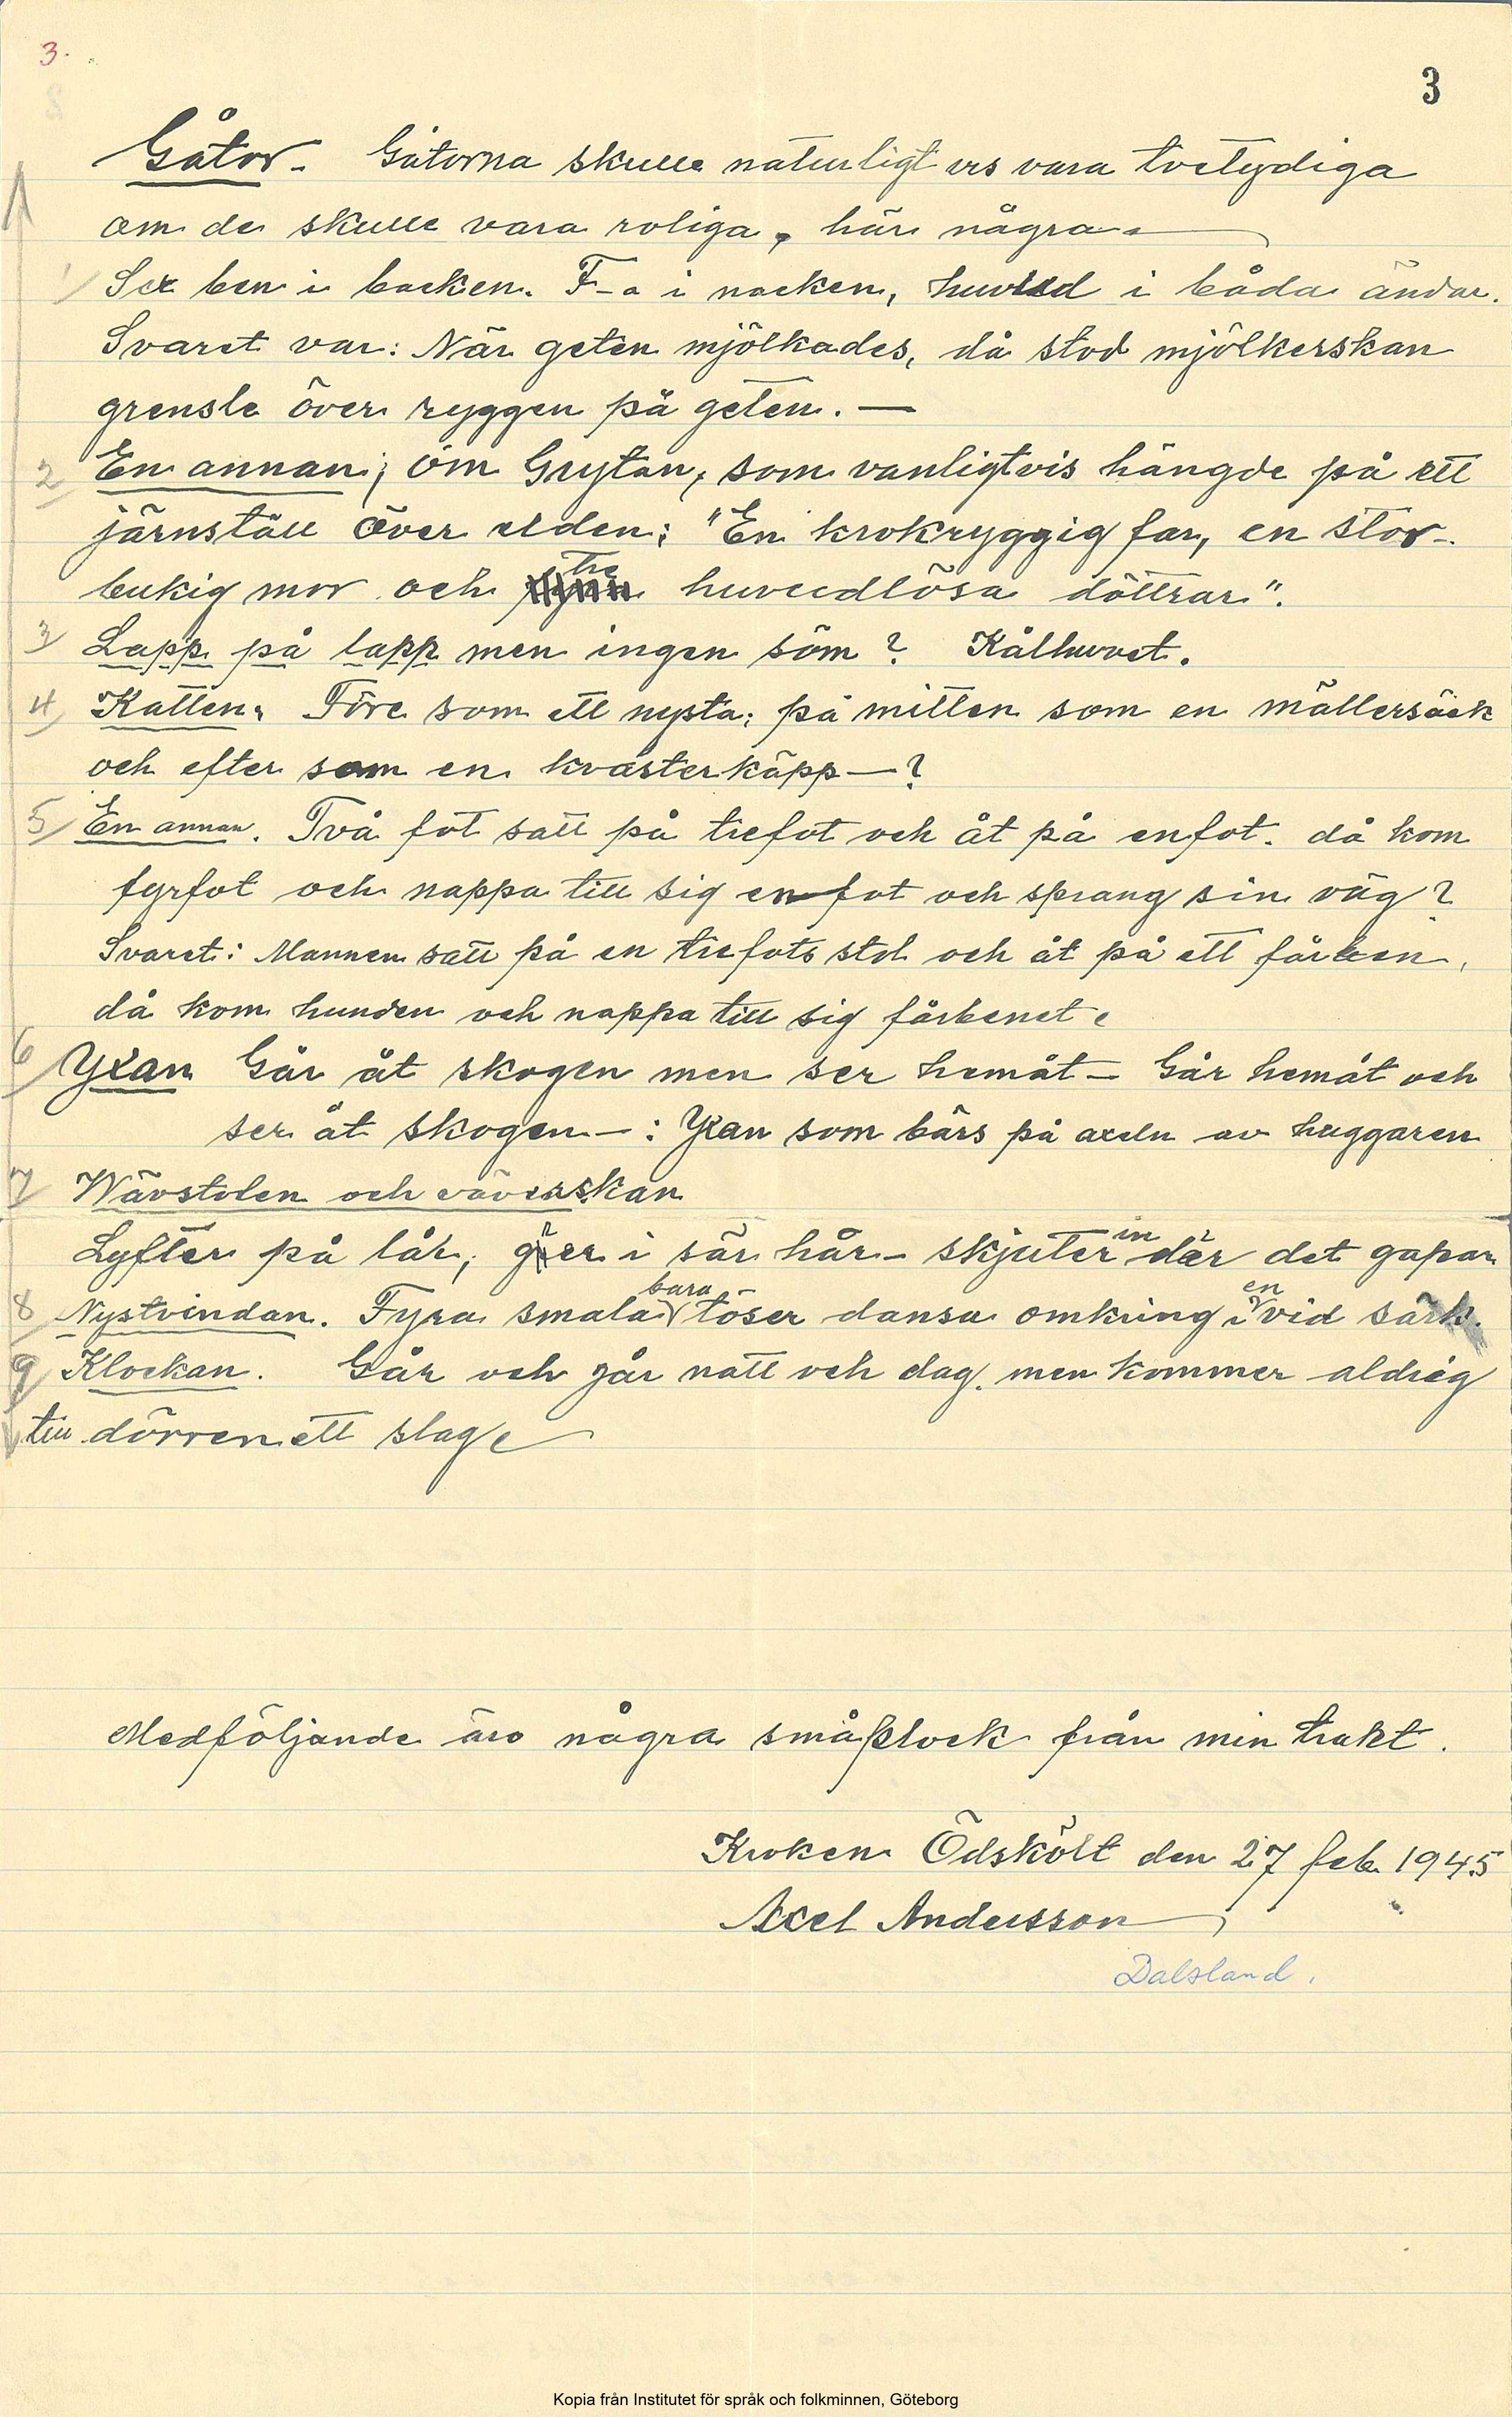 3.
3
Gåtor. Gåtorna skulle naturligtvis vara tvetydiga
om de skulle vara roliga, här några.
1/ Sex ben i backen. F-a i nacken, huvud i båda ändar.
Svaret var: När geten mjölkades, då stod mjölkerskan
grensle över ryggen på geten. —
2/ En annan; om Grytan, som vanligtvis hängde på ett
järnställ över elden: "En krokryggig far, en stor-
bukig mor och tre huvudlösa döttrar".
3/ Lapp på lapp men ingen söm? Kålhuvet.
4/ Katten. Före som ett nysta, på mitten som en mällersäck
och efter som en kvasterkäpp—?
5/ En annan. Två fot satt på trefot och åt på enfot. då kom
fyrfot och nappa till sig enfot och sprang sin väg?
Svaret: Mannen satt på en trefots stol och åt på ett fårben,
då kom hunden och nappa till sig fårbenet.
6/ Yxan Går åt skogen men ser hemåt — Går hemåt och
ser åt skogen —: Yxan som bärs på axeln av huggaren
7/ Wävstolen och väverskan
Lyfter på lår, glor i sär hår — skjuter in där det gapar
8/ Nystvindan. Fyra smala bara töser dansa omkring i en vid särk.
9/ Klockan. Går och går natt och dag, men kommer aldrig
till dörren ett slag
Medföljande äro några småplock från min trakt.
Kroken Ödskölt den 27 feb. 1945
Axel Andersson
Dalsland.
Kopia från Institutet för språk och folkminnen, Göteborg